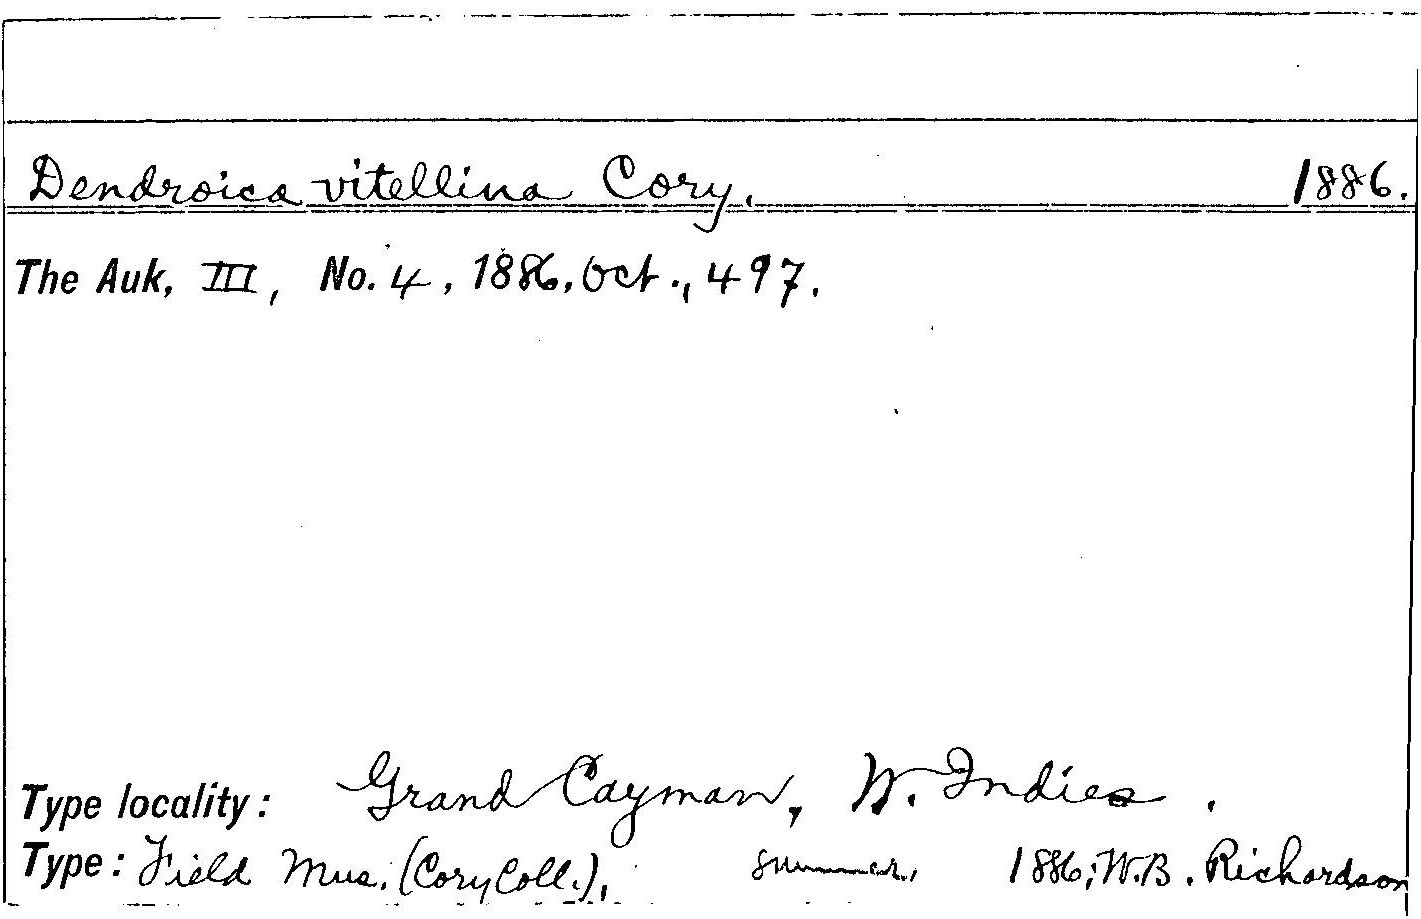 Dendroica vitellina Cory. 1886.
The Auk, III, No. 4, 1886, Oct., 497.
Type locality: Grand Cayman, W. Indies.
Type: Field Mus. (Cory Coll.), summer, 1886; W.B. Richardson